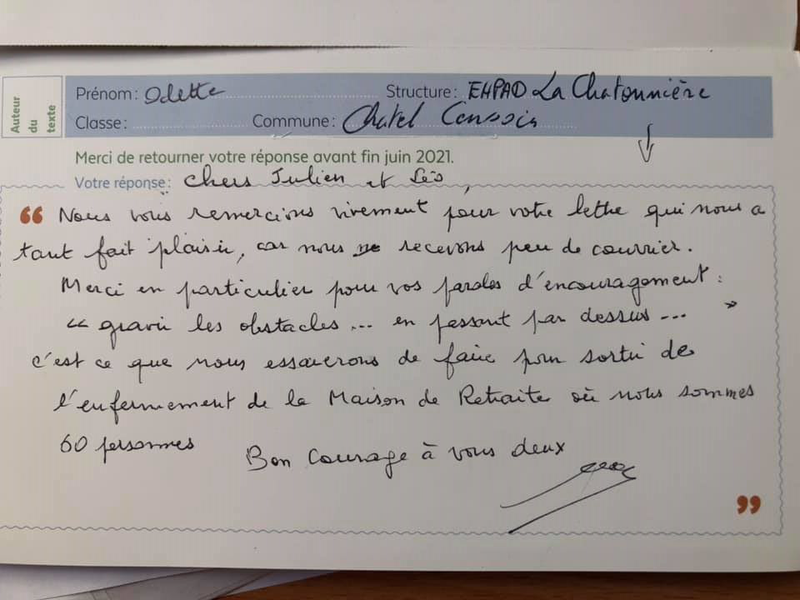 Auteur du texte
Prénom : Odette Structure : EHPAD La Chatonnière
Classe : Commune : Chatel Censoir
Merci de retourner votre réponse avant fin juin 2021.
Votre réponse : Chers Julien et Léo,
“ Nous vous remercions vivement pour votre lettre qui nous a
tant fait plaisir, car nous recevons peu de courrier.
Merci en particulier pour vos paroles d'encouragement :
« gravir les obstacles... en passant par dessus... »
c'est ce que nous essaierons de faire pour sortir de
l'enfermement de la Maison de Retraite où nous sommes
60 personnes
Bon Courage à vous deux
”